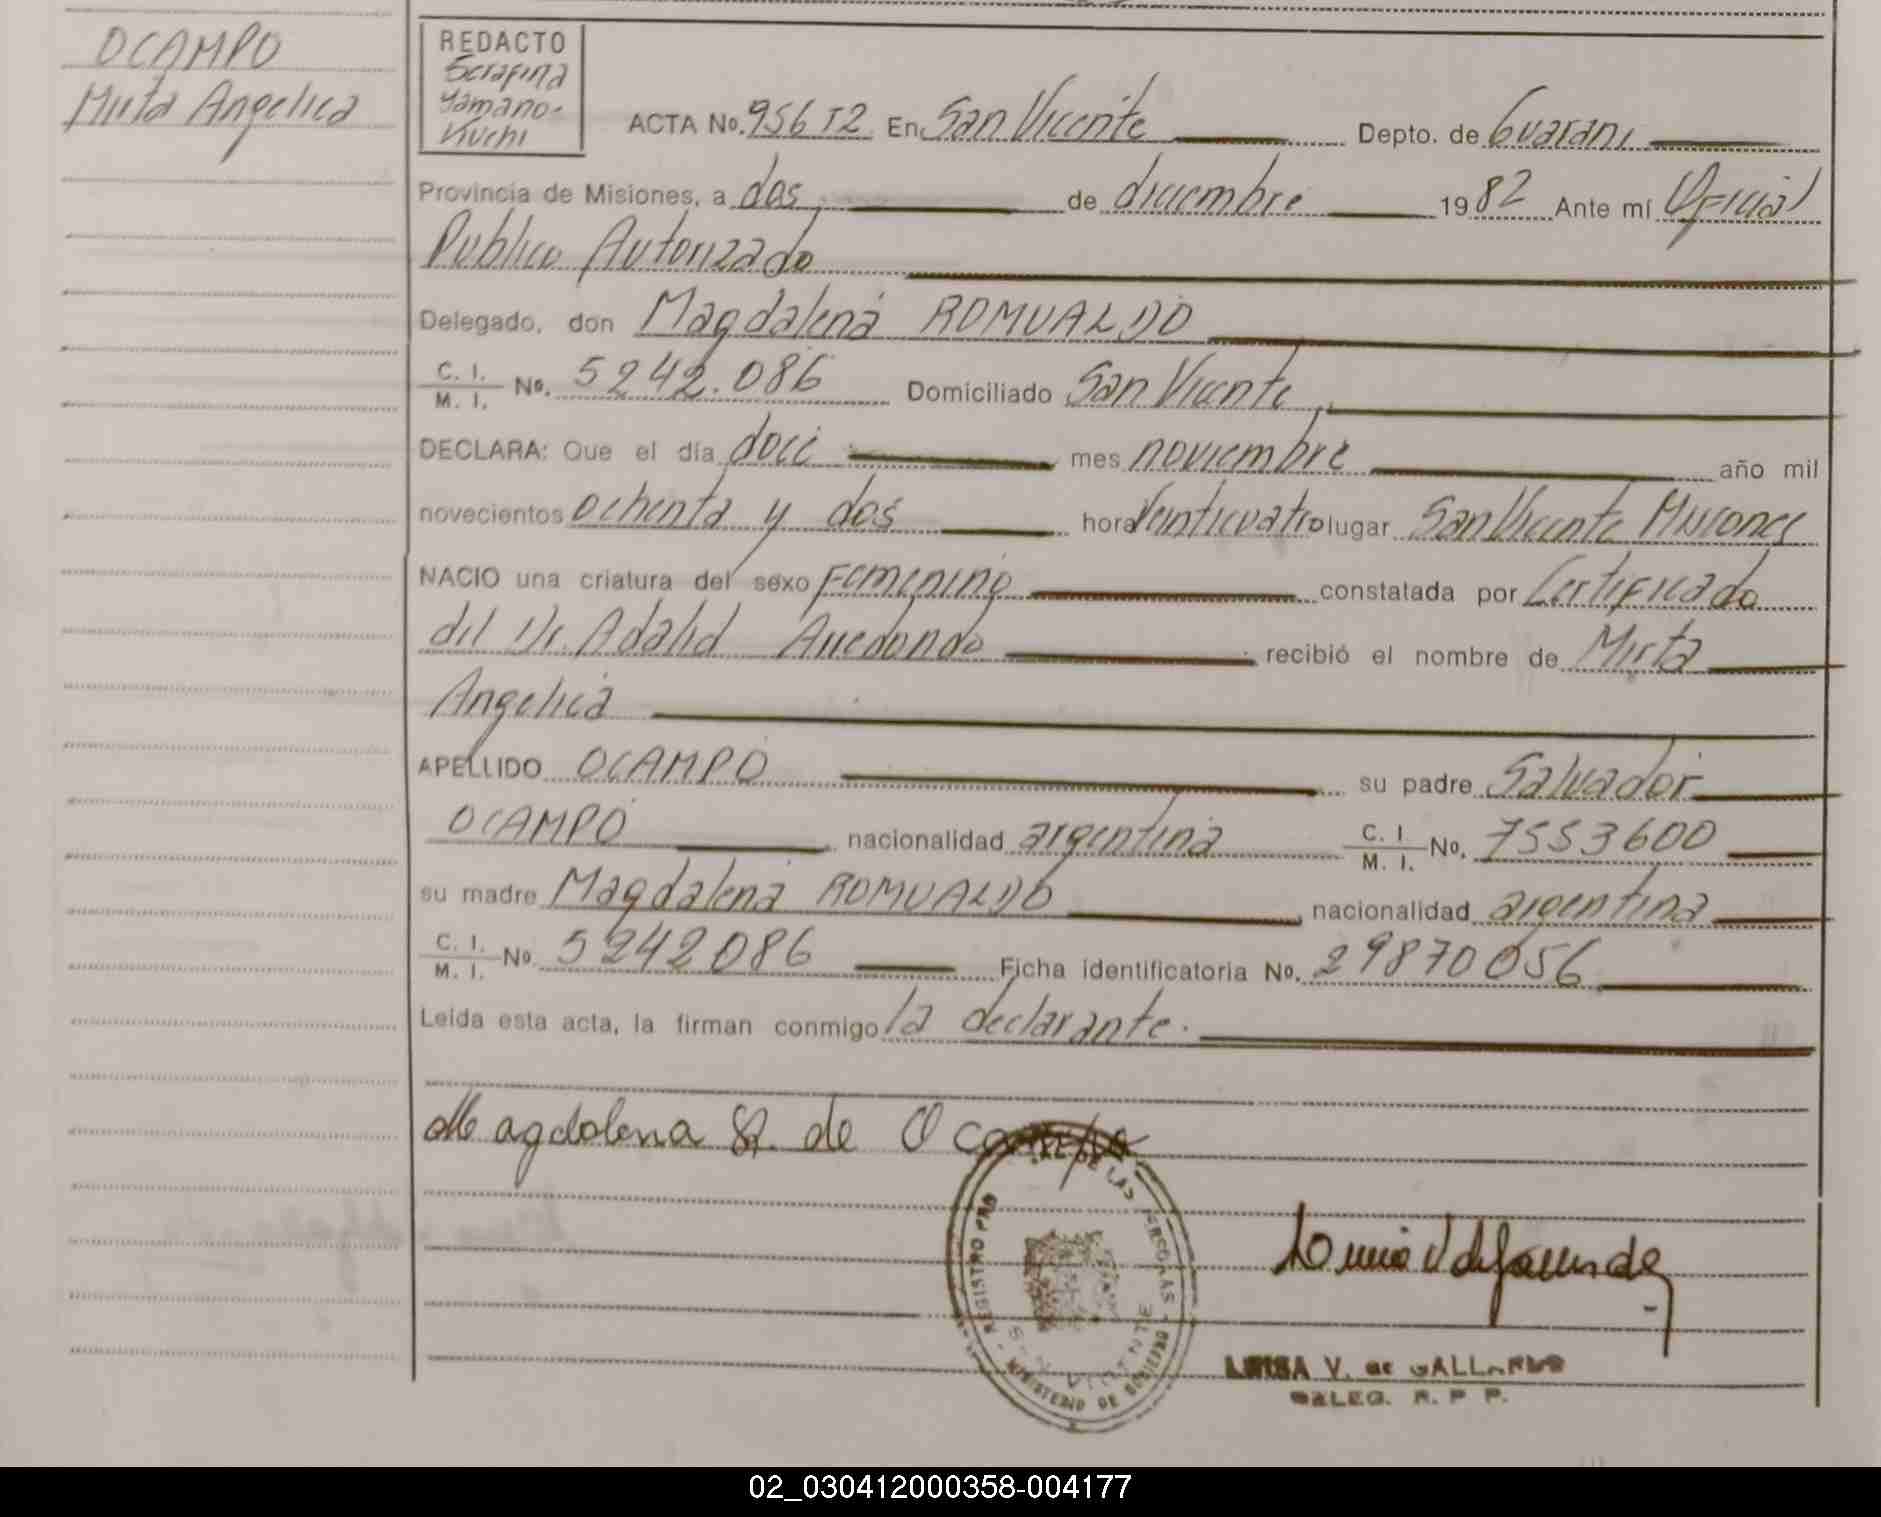 OCAMPO
Mirta Angelica
REDACTO
Serafina
Yamano-
Kuchi
ACTA No. 956 T2 En San Vicente Depto. de Guarani
Provincia de Misiones, a dos de diciembre 1982 Ante mí Oficial
Publico Autorizado
Delegado, don Magdalena ROMUALDO
C. I. / M. I. No. 5242.086 Domiciliado San Vicente
DECLARA: Que el día doce mes noviembre año mil
novecientos ochenta y dos hora veinticuatro lugar San Vicente Misiones
NACIO una criatura del sexo Femenino constatada por Certificado
del Dr. Adalid Arredondo recibió el nombre de Mirta
Angelica
APELLIDO OCAMPO su padre Salvador
OCAMPO nacionalidad argentina C. I. / M. I. No. 7553600
su madre Magdalena ROMUALDO nacionalidad argentina
C. I. / M. I. No. 5242086 Ficha identificatoria No. 29870056
Leída esta acta, la firman conmigo la declarante.
Magdalena R. de Ocampo
REGISTRO PRO DE LAS PERSONAS
MINISTERIO DE GOBIERNO
LUISA V. de GALLARDO
DELEG. R. P P.
02_030412000358-004177